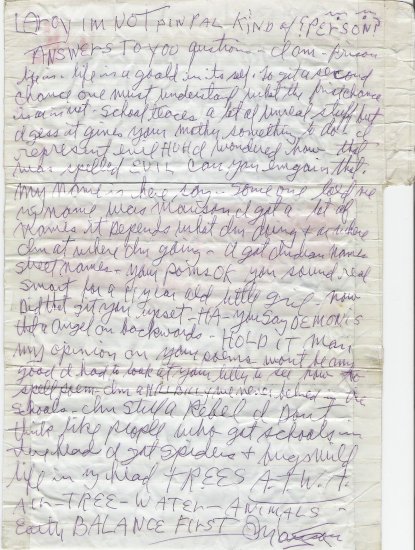 LEroy IM NOT PINPAL KIND of PERSON
ANSWERS TO YOU questions - I am - prison
years - life is a in its self. To get a second
chance one must understand what the first chance
is or is not. School teaces a lot of unreal stuff but
I gess it gives your something to do. I
represent evil HUH I wondered how that
was spelled EVIL can you that.
My name is here say - Someone told me
my name was Manson I got a lot of
names it Depends what I'm doing & or where
I'm at where I'm going - I got Indian names
street names - your poms OK you sound real
smart for a year old little girl - now
Did that get you upset - HA - you say DEMON IS
that Angel on backwards - HOLD IT man
my opinion on your poems wont be any
good I had to look at your letter to see how to
spell poem - I'm a HILLBILLY & we never in the
schools - I'm still a Rebel I Don't
think like people who got schools in
there head I got spiders & bugs wild
life in my head TREES A.T.W.A
AIR - TREE - WATER - ANIMALS -
Earth BALANCE FIRST